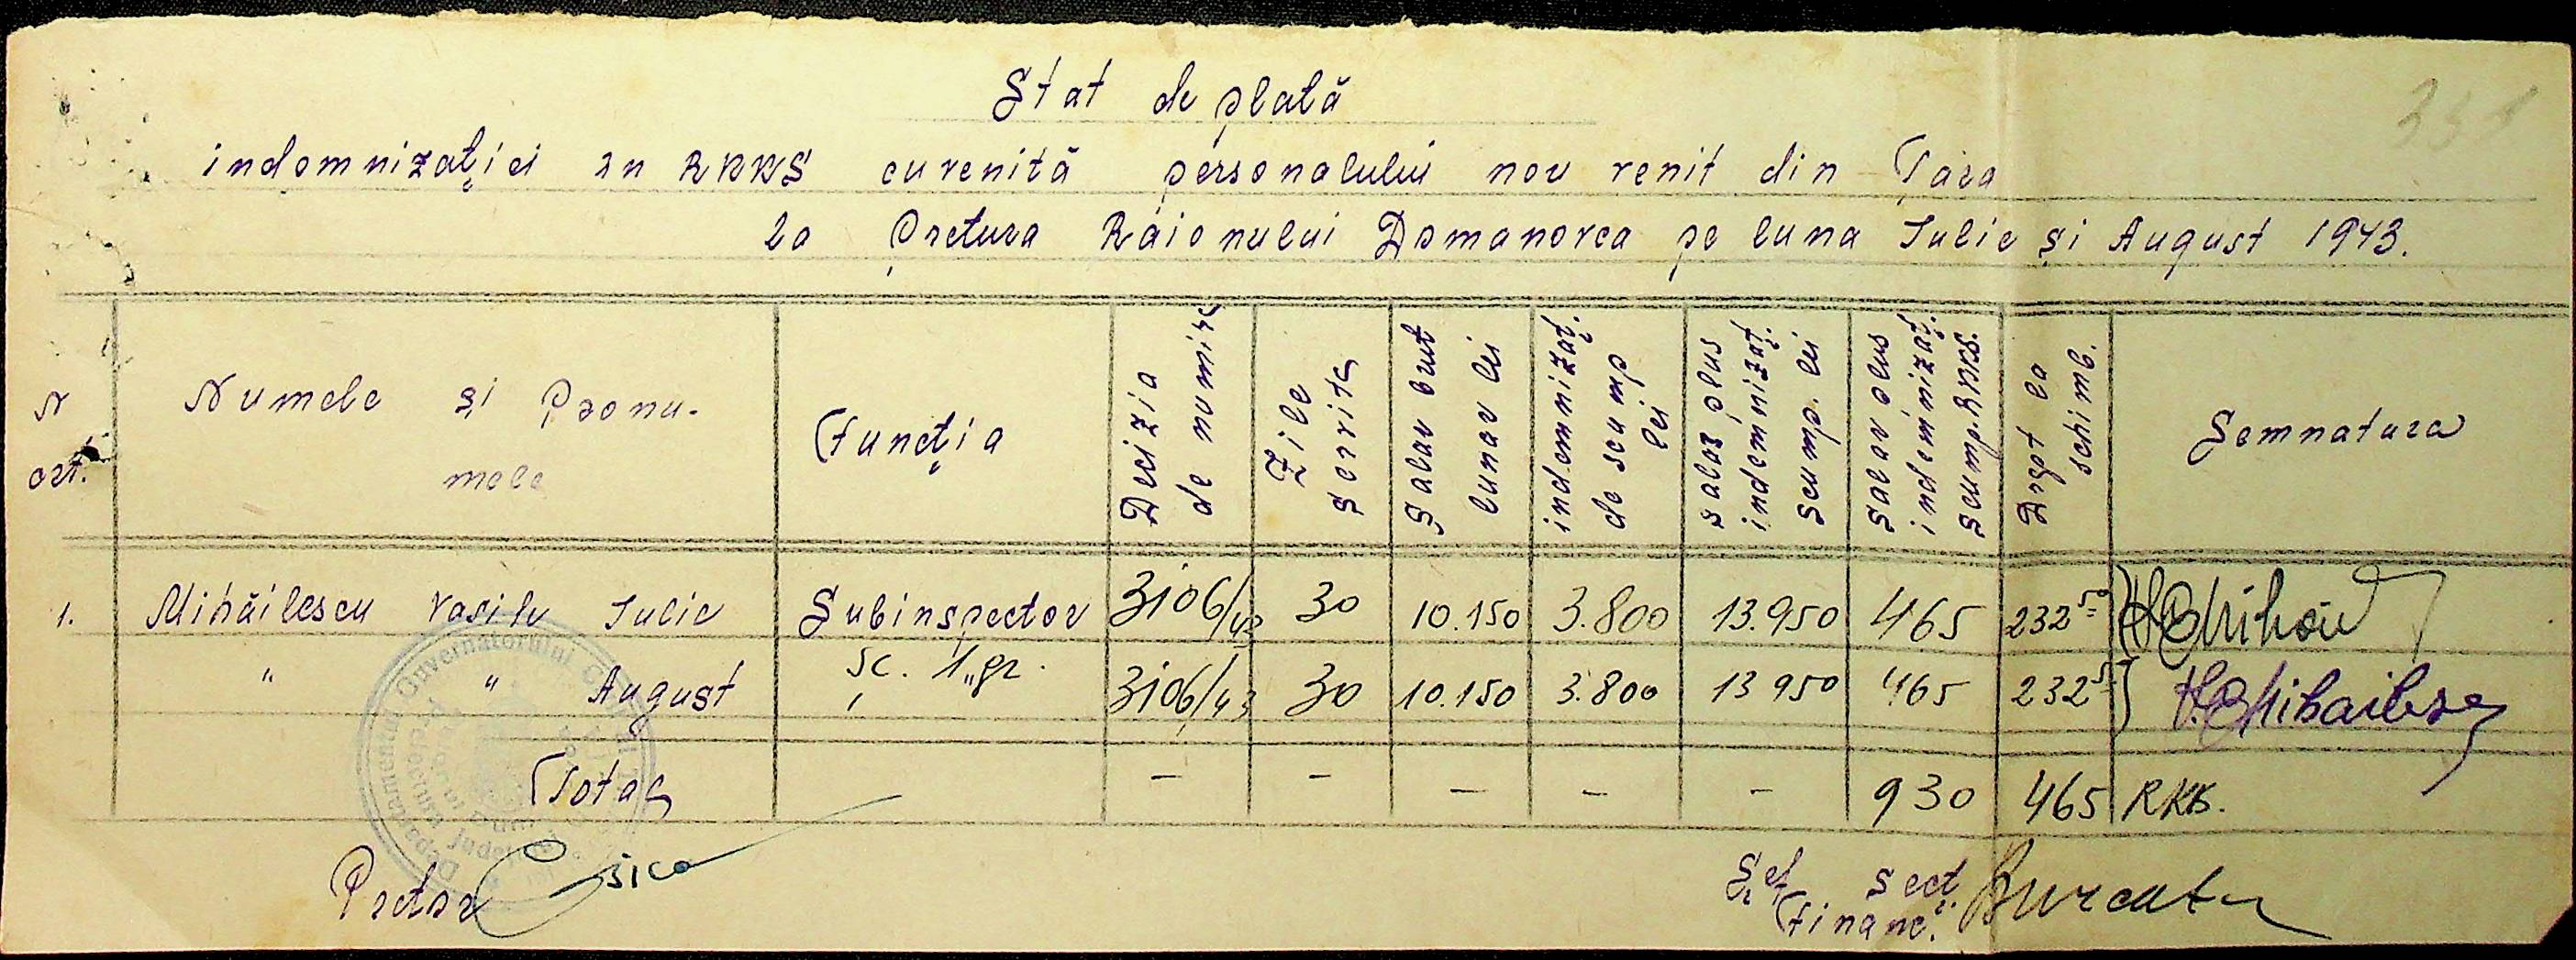 Stat de plată
indemnizaţiei în RKKS cuvenită personalului nou venit din Ţara
la Pretura Raionului Domanovca pe luna Iulie și August 1943.
N crt. | Numele și Pronumele | Funcţia | Decizia de numire | Zile servite | Salar brut lunar lei | indemnizaţ. de scump lei | salar plus indemnizaţ. scump. lei | salar plus indemnizaţ. scump. RKKS. | Drept la schimb. | Semnatura
1. | Mihăilescu Vasile Iulie | Subinspector | 3106/43 | 30 | 10.150 | 3.800 | 13.950 | 465 | 232 50
" " August | Sc. 1 gr. " | 3106/43 | 30 | 10.150 | 3.800 | 13 950 | 465 | 232 5 | V. Mihailesc
Total | — | — | — | — | — | 930 | 465 | RKKS.
Pretor
Șef Secţ. Financ.
Guvernatorului